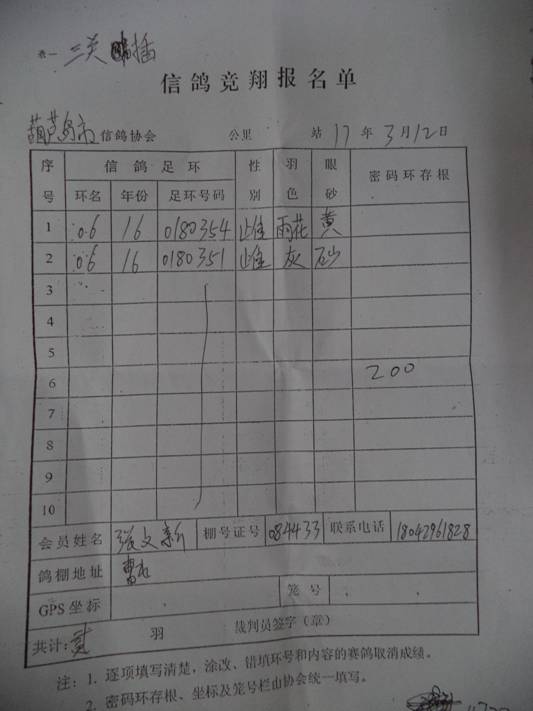 表一 三关 插
信鸽竞翔报名单
葫芦岛市信鸽协会 公里 站 17年3月12日
序号 信鸽足环 性别 羽色 眼砂 密码环存根
环名 年份 足环号码
1 06 16 0180354 雄 雨花 黄
2 06 16 0180351 雌 灰 砂
3
4
5
6 200
7
8
9
10
会员姓名 张文新 棚号证号 084433 联系电话 18042961828
鸽棚地址
GPS坐标 笼号
共计: 羽 裁判员签字(章)
注: 1. 逐项填写清楚,涂改、错填环号和内容的赛鸽取消成绩。
2. 密码环存根、坐标及笼号栏由协会统一填写。